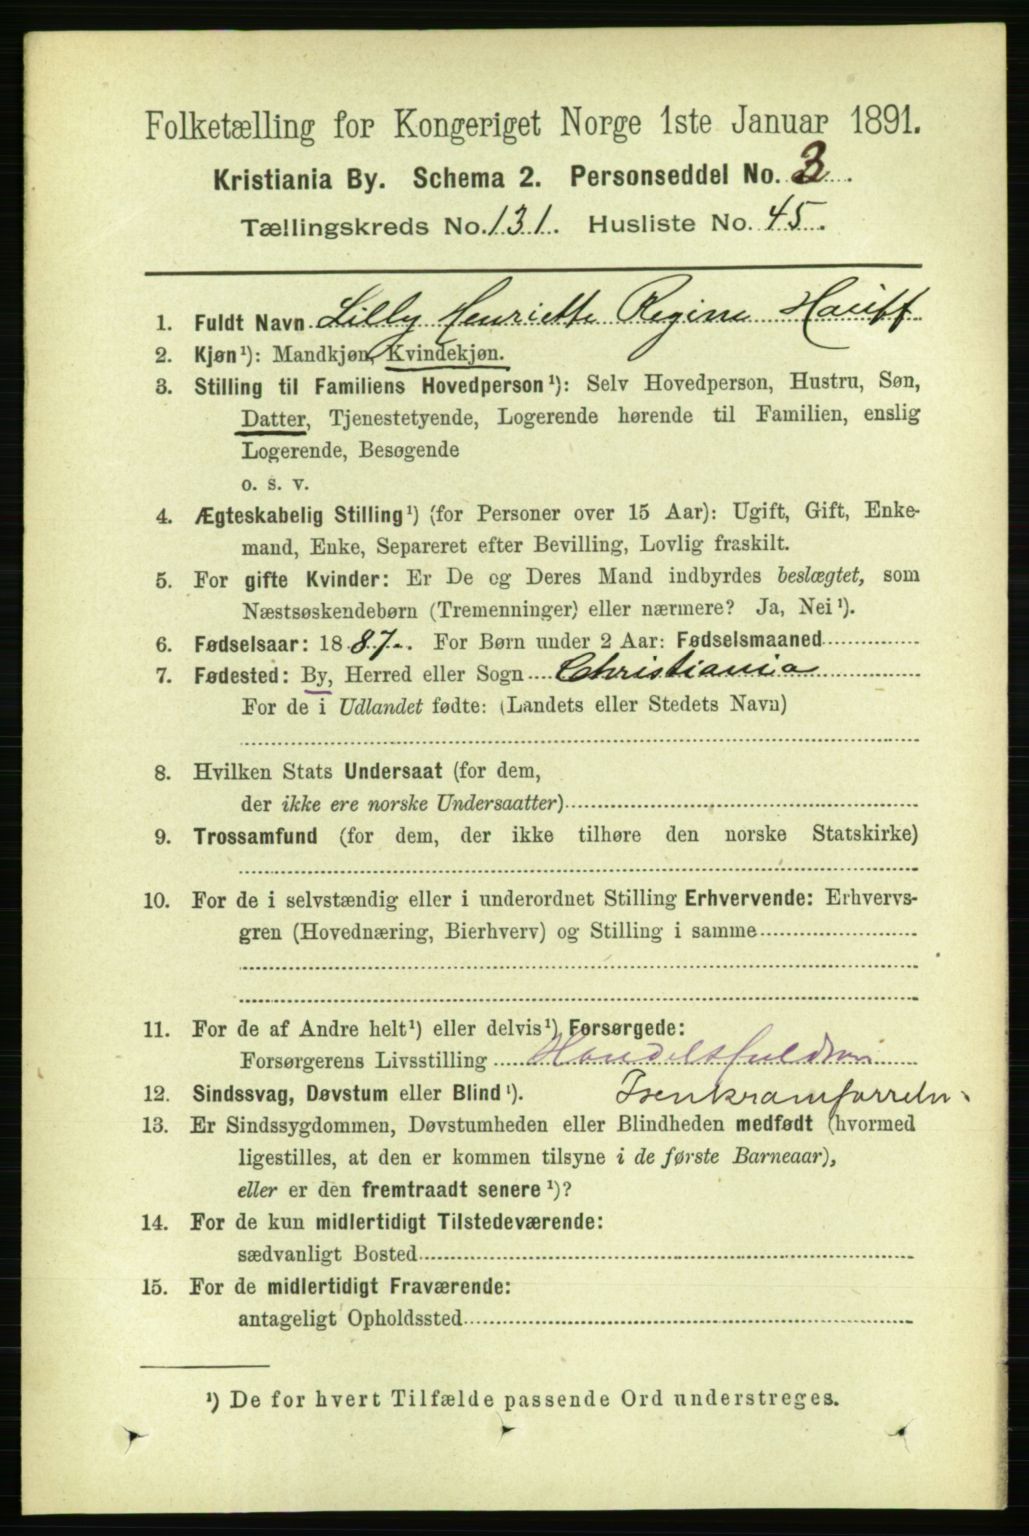 Folketælling for Kongeriget Norge 1ste Januar 1891.
Kristiania By. Schema 2. Personseddel No. 3.
Tællingskreds No. 131. Husliste No. 45.
1. Fuldt Navn Lilly Henriette Regine Hauff
2. Kjøn¹): Mandkjøn, Kvindekjøn.
3. Stilling til Familiens Hovedperson¹): Selv Hovedperson, Hustru, Søn,
Datter, Tjenestetyende, Logerende hørende til Familien, enslig
Logerende, Besøgende
o. s. v.
4. Ægteskabelig Stilling¹) (for Personer over 15 Aar): Ugift, Gift, Enke-
mand, Enke, Separeret efter Bevilling, Lovlig fraskilt.
5. For gifte Kvinder: Er De og Deres Mand indbyrdes beslægtet, som
Næstsøskendebørn (Tremenninger) eller nærmere? Ja, Nei¹).
6. Fødselsaar: 1887. For Børn under 2 Aar: Fødselsmaaned
7. Fødested: By, Herred eller Sogn Christiania
For de i Udlandet fødte: (Landets eller Stedets Navn)
8. Hvilken Stats Undersaat (for dem,
der ikke ere norske Undersaatter)
9. Trossamfund (for dem, der ikke tilhøre den norske Statskirke)
10. For de i selvstændig eller i underordnet Stilling Erhvervende: Erhvervs-
gren (Hovednæring, Bierhverv) og Stilling i samme
11. For de af Andre helt¹) eller delvis¹) Forsørgede:
Forsørgerens Livsstilling Handelsfuldm
12. Sindssvag, Døvstum eller Blind¹). Isenkramforretn.
13. Er Sindssygdommen, Døvstumheden eller Blindheden medfødt (hvormed
ligestilles, at den er kommen tilsyne i de første Barneaar),
eller er den fremtraadt senere¹)?
14. For de kun midlertidigt Tilstedeværende:
sædvanligt Bosted
15. For de midlertidigt Fraværende:
antageligt Opholdssted
¹) De for hvert Tilfælde passende Ord understreges.